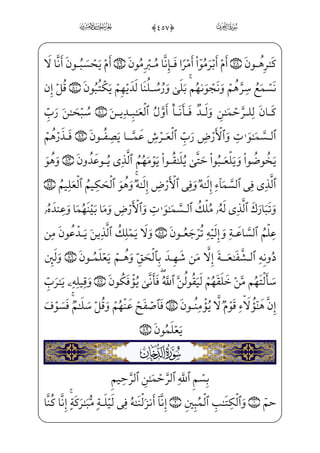 سُورَةُ الزُّخْرُفِ ﴿٤٥٧﴾ الجُزْءُ الخَامِسُ وَالعِشْرُونَ
كَٰرِهُونَ ٧٨ أَمْ أَبْرَمُوٓا۟ أَمْرًا فَإِنَّا مُبْرِمُونَ ٧٩ أَمْ يَحْسَبُونَ أَنَّا لَا
نَسْمَعُ سِرَّهُمْ وَنَجْوَىٰهُم ۚ بَلَىٰ وَرُسُلُنَا لَدَيْهِمْ يَكْتُبُونَ ٨٠ قُلْ إِن
كَانَ لِلرَّحْمَٰنِ وَلَدٌ فَأَنَا۠ أَوَّلُ ٱلْعَٰبِدِينَ ٨١ سُبْحَٰنَ رَبِّ
ٱلسَّمَٰوَٰتِ وَٱلْأَرْضِ رَبِّ ٱلْعَرْشِ عَمَّا يَصِفُونَ ٨٢ فَذَرْهُمْ
يَخُوضُوا۟ وَيَلْعَبُوا۟ حَتَّىٰ يُلَٰقُوا۟ يَوْمَهُمُ ٱلَّذِى يُوعَدُونَ ٨٣ وَهُوَ
ٱلَّذِى فِى ٱلسَّمَآءِ إِلَٰهٌ وَفِى ٱلْأَرْضِ إِلَٰهٌ ۚ وَهُوَ ٱلْحَكِيمُ ٱلْعَلِيمُ ٨٤
وَتَبَارَكَ ٱلَّذِى لَهُۥ مُلْكُ ٱلسَّمَٰوَٰتِ وَٱلْأَرْضِ وَمَا بَيْنَهُمَا وَعِندَهُۥ
عِلْمُ ٱلسَّاعَةِ وَإِلَيْهِ تُرْجَعُونَ ٨٥ وَلَا يَمْلِكُ ٱلَّذِينَ يَدْعُونَ مِن
دُونِهِ ٱلشَّفَٰعَةَ إِلَّا مَن شَهِدَ بِٱلْحَقِّ وَهُمْ يَعْلَمُونَ ٨٦ وَلَئِن
سَأَلْتَهُم مَّنْ خَلَقَهُمْ لَيَقُولُنَّ ٱللَّهُ ۖ فَأَنَّىٰ يُؤْفَكُونَ ٨٧ وَقِيلِهِۦ يَٰرَبِّ
إِنَّ هَٰٓؤُلَآءِ قَوْمٌ لَّا يُؤْمِنُونَ ٨٨ فَٱصْفَحْ عَنْهُمْ وَقُلْ سَلَٰمٌ ۚ فَسَوْفَ
يَعْلَمُونَ ٨٩
سُورَةُ الدُّخَانِ
بِسْمِ ٱللَّهِ ٱلرَّحْمَٰنِ ٱلرَّحِيمِ
حمٓ ١ وَٱلْكِتَٰبِ ٱلْمُبِينِ ٢ إِنَّآ أَنزَلْنَٰهُ فِى لَيْلَةٍ مُّبَٰرَكَةٍ ۚ إِنَّا كُنَّا